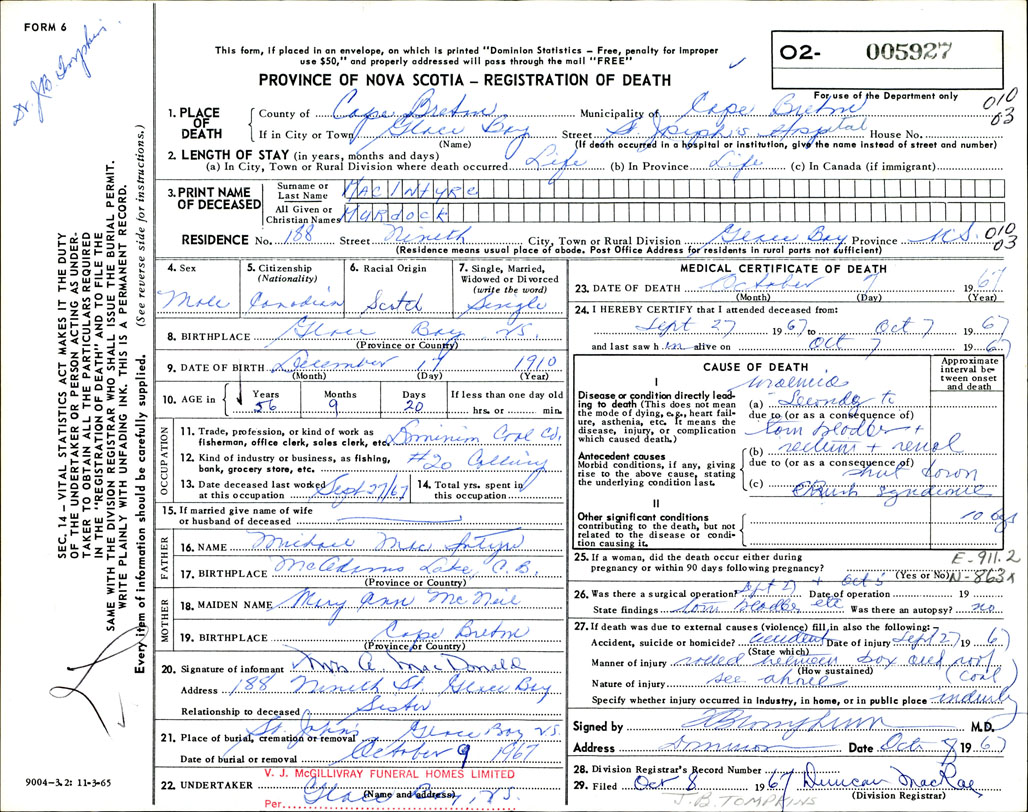 FORM 6
Dr. J.B. Tompkins
This form, if placed in an envelope, on which is printed "Dominion Statistics – Free, penalty for improper
use $50," and properly addressed will pass through the mail "FREE"
PROVINCE OF NOVA SCOTIA – REGISTRATION OF DEATH
O2- 005927
For use of the Department only
010
03
1. PLACE OF DEATH
County of Cape Breton Municipality of Cape Breton
If in City or Town Glace Bay Street St Joseph's Hospital House No.
(Name) (If death occurred in a hospital or institution, give the name instead of street and number)
2. LENGTH OF STAY (in years, months and days)
(a) In City, Town or Rural Division where death occurred Life (b) In Province Life (c) In Canada (if immigrant)
3. PRINT NAME OF DECEASED
Surname or Last Name MacINTYRE
All Given or Christian Names MURDOCK
RESIDENCE No. 188 Street Nineth City, Town or Rural Division Glace Bay Province N.S. 010
03
(Residence means usual place of abode. Post Office Address for residents in rural parts not sufficient)
4. Sex
Male
5. Citizenship (Nationality)
Canadian
6. Racial Origin
Scotch
7. Single, Married, Widowed or Divorced (write the word)
Single
8. BIRTHPLACE Glace Bay NS.
(Province or Country)
9. DATE OF BIRTH December 17 1910
(Month) (Day) (Year)
10. AGE in Years Months Days If less than one day
56 9 20 hrs. or min.
OCCUPATION
11. Trade, profession, or kind of work as fisherman, office clerk, sales clerk, etc. Dominion Coal Co.
12. Kind of industry or business, as fishing, bank, grocery store, etc. #20 Colliery
13. Date deceased last worked at this occupation Sept 27/67
14. Total yrs. spent in this occupation
15. If married give name of wife or husband of deceased
FATHER
16. NAME Michael MacIntyre
17. BIRTHPLACE McAdams Lake, C.B.
(Province or Country)
MOTHER
18. MAIDEN NAME Mary Ann McNeil
19. BIRTHPLACE Cape Breton
(Province or Country)
20. Signature of informant Mrs A MacDonald
Address 188 Nineth St Glace Bay
Relationship to deceased Sister
21. Place of burial, cremation or removal St. John's Glace Bay NS
Date of burial or removal October 9 1967
V. J. McGILLIVRAY FUNERAL HOMES LIMITED
22. UNDERTAKER Glace Bay, NS.
(Name and address)
Per
MEDICAL CERTIFICATE OF DEATH
23. DATE OF DEATH October 7 1967
(Month) (Day) (Year)
24. I HEREBY CERTIFY that I attended deceased from:
Sept 27 1967 to Oct 7 1967
and last saw him alive on Oct 7 1967
CAUSE OF DEATH
Approximate interval between onset and death
I
Disease or condition directly leading to death (This does not mean the mode of dying, e.g., heart failure, asthenia, etc. It means the disease, injury, or complication which caused death.)
uraemia
(a) Secondary to
due to (or as a consequence of)
torn bladder +
Antecedent causes
Morbid conditions, if any, giving rise to the above cause, stating the underlying condition last.
(b) rectum + renal
due to (or as a consequence of)
shut down
(c) Crush syndrome
II
Other significant conditions contributing to the death, but not related to the disease or condition causing it.
10 dys
25. If a woman, did the death occur either during pregnancy or within 90 days following pregnancy? (Yes or No)
E-911.2
N-863X
26. Was there a surgical operation? Sept 27 + Oct 5 Date of operation 19
State findings torn bladder etc Was there an autopsy? no
27. If death was due to external causes (violence) fill in also the following:–
Accident, suicide or homicide? accident Date of injury Sept 27 1967
(State which)
Manner of injury rolled between box and roof
(How sustained) (coal)
Nature of injury see above
Specify whether injury occurred in industry, in home, or in public place industry
Signed by M.D.
Address Dominion Date Oct 8 1967
28. Division Registrar's Record Number
29. Filed Oct 8 1967 Duncan MacRae
(Division Registrar)
J.B. TOMPKINS
SEC. 14 – VITAL STATISTICS ACT MAKES IT THE DUTY
OF THE UNDERTAKER OR PERSON ACTING AS UNDER-
TAKER TO OBTAIN ALL THE PARTICULARS REQUIRED
IN THE "REGISTRATION OF DEATH" AND TO FILE THE
SAME WITH THE DIVISION REGISTRAR WHO SHALL ISSUE THE BURIAL PERMIT.
WRITE PLAINLY WITH UNFADING INK. THIS IS A PERMANENT RECORD.
Every item of information should be carefully supplied. (See reverse side for instructions.)
9004–3.2: 11-3-65